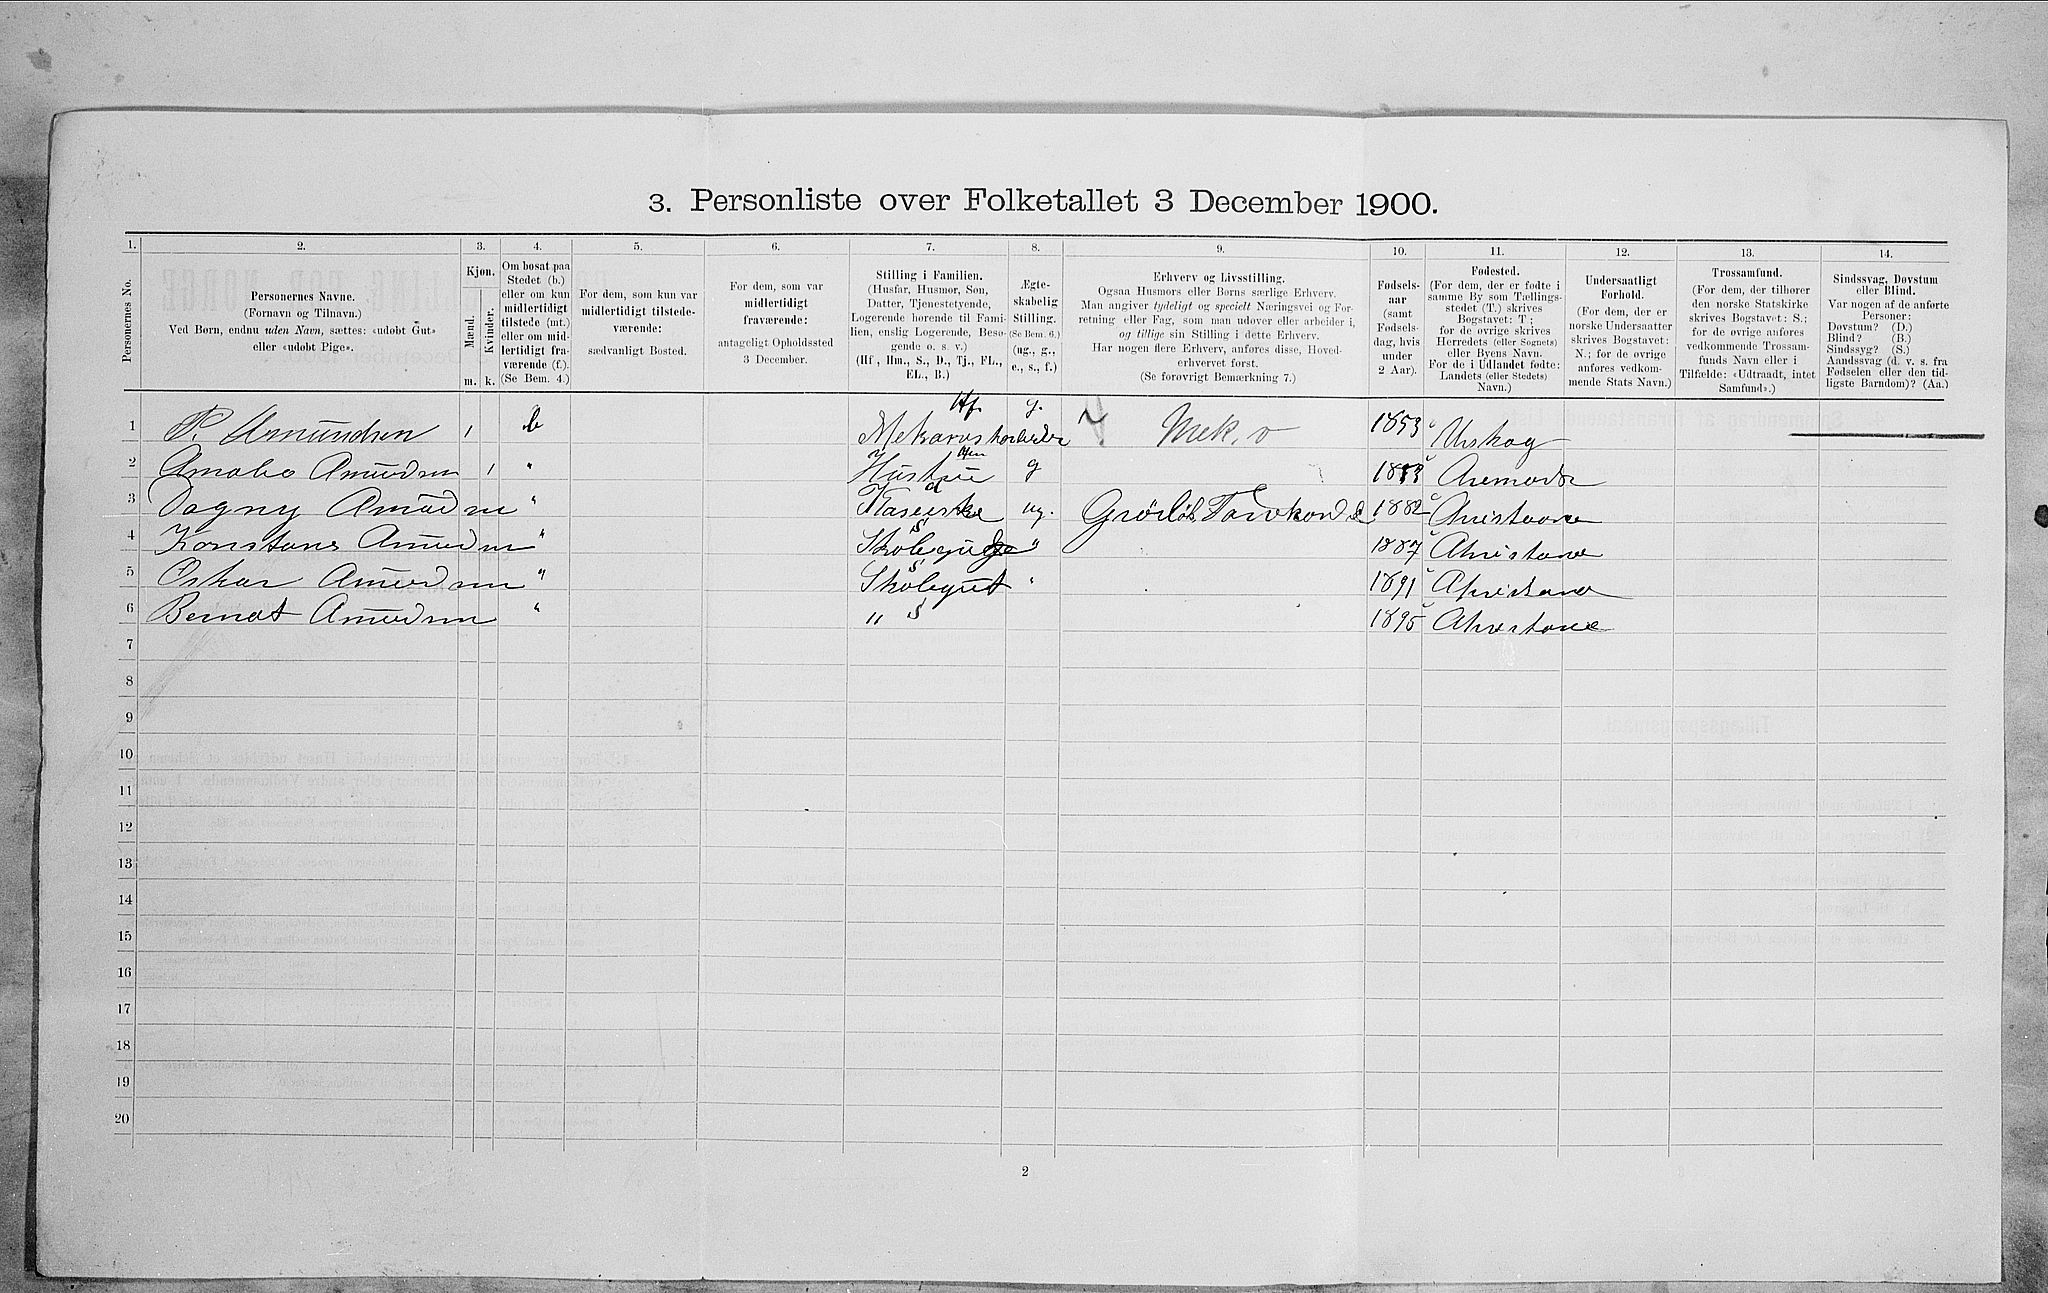 3. Personliste over Folketallet 3 December 1900.
1. 2. 3. 4. 5. 6. 7. 8. 9. 10. 11. 12. 13. 14.
Personernes No.
Personernes Navne.
(Fornavn og Tilnavn.)
Ved Børn, endnu uden Navn, sættes: «udøbt Gut»
eller «udøbt Pige».
Kjøn.
Mænd.
Kvinder.
m. k.
Om bosat paa
Stedet (b.)
eller om kun
midlertidigt
tilstede (mt.)
eller om mid-
lertidigt fra-
værende (f.).
(Se Bem. 4.)
For dem, som kun var
midlertidigt tilstede-
værende:
sædvanligt Bosted.
For dem, som var
midlertidigt
fraværende:
antageligt Opholdssted
3 December.
Stilling i Familien.
(Husfar, Husmor, Søn,
Datter, Tjenestetyende,
Logerende hørende til Fami-
lien, enslig Logerende, Besø-
gende o. s. v.)
(Hf, Hm., S., D., Tj., FL.,
EL., B.)
Ægte-
skabelig
Stilling.
(Se Bem. 6.)
(ug., g.,
e., s., f.)
Erhverv og Livsstilling.
Ogsaa Husmors eller Børns særlige Erhverv.
Man angiver tydeligt og specielt Næringsvei og For-
retning eller Fag, som man udøver eller arbeider i,
og tillige sin Stilling i dette Erhverv.
Har nogen flere Erhverv, anføres disse, Hoved-
erhvervet først.
(Se forøvrigt Bemærkning 7.)
Fødsels-
aar
(samt
Fødsels-
dag, hvis
under
2 Aar).
Fødested.
(For dem, der er fødte i
samme By som Tællings-
stedet (T.) skrives
Bogstavet: T;
for de øvrige skrives
Herredets (eller Sognets)
eller Byens Navn.
For de i Udlandet fødte:
Landets (eller Stedets)
Navn.)
Undersaatligt
Forhold.
(For dem, der er
norske Undersaatter
skrives Bogstavet:
N.; for de øvrige
anføres vedkom-
mende Stats Navn.)
Trossamfund.
(For dem, der tilhører
den norske Statskirke
skrives Bogstavet: S.;
for de øvrige anføres
vedkommende Trossam-
funds Navn eller i
Tilfælde: «Udtraadt, intet
Samfund».)
Sindssvag, Døvstum
eller Blind.
Var nogen af de anførte
Personer:
Døvstum? (D.)
Blind? (B.)
Sindssyg? (S.)
Aandssvag (d. v. s. fra
Fødselen eller den tid-
ligste Barndom)? (Aa.)
1 P. Amundsen 1 b Hf. g. Mek. v 1853 Urskog
2 1 " Hustru Hm g
3 Dagny " d ug. 1882
4 " S " 1887
5 Oskar " Skolegut S " 1891
6 Berndt " " S 1895
7
8
9
10
11
12
13
14
15
16
17
18
19
20
2